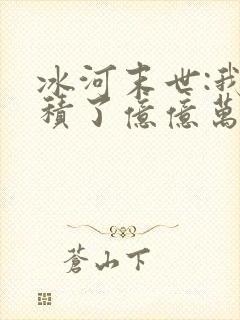 冰河末世:我
積了億億萬
蒼山下